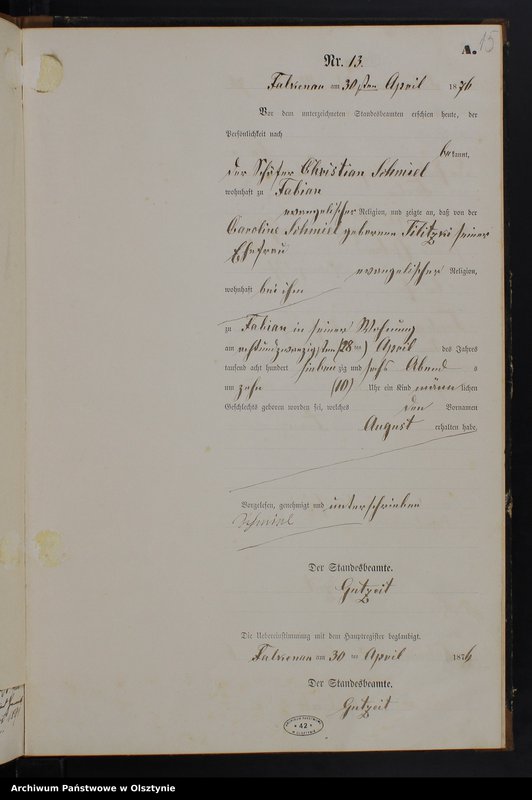 A. 15
Nr. 13.
Falkenau am 30sten April 1876
Vor dem unterzeichneten Standesbeamten erschien heute, der
Persönlichkeit nach
bekannt,
der Schäfer Christian Schmiel
wohnhaft zu Fabian
evangelischer Religion, und zeigte an, daß von der
Caroline Schmiel geborenen Tilitzki seiner
Ehefrau
evangelischer Religion,
wohnhaft bei ihm
zu Fabian in seiner Wohnung
am achtundzwanzigsten (28ten) April des Jahres
tausend acht hundert siebenzig und sechs Abend s
um zehn (10) Uhr ein Kind männlichen
Geschlechts geboren worden sei, welches den Vornamen
August erhalten habe.
Vorgelesen, genehmigt und unterschrieben
Schmiel
Der Standesbeamte.
Gutzeit
Die Uebereinstimmung mit dem Hauptregister beglaubigt.
Falkenau am 30 ten April 1876
Der Standesbeamte.
Gutzeit
* 42 *
Archiwum Państwowe w Olsztynie